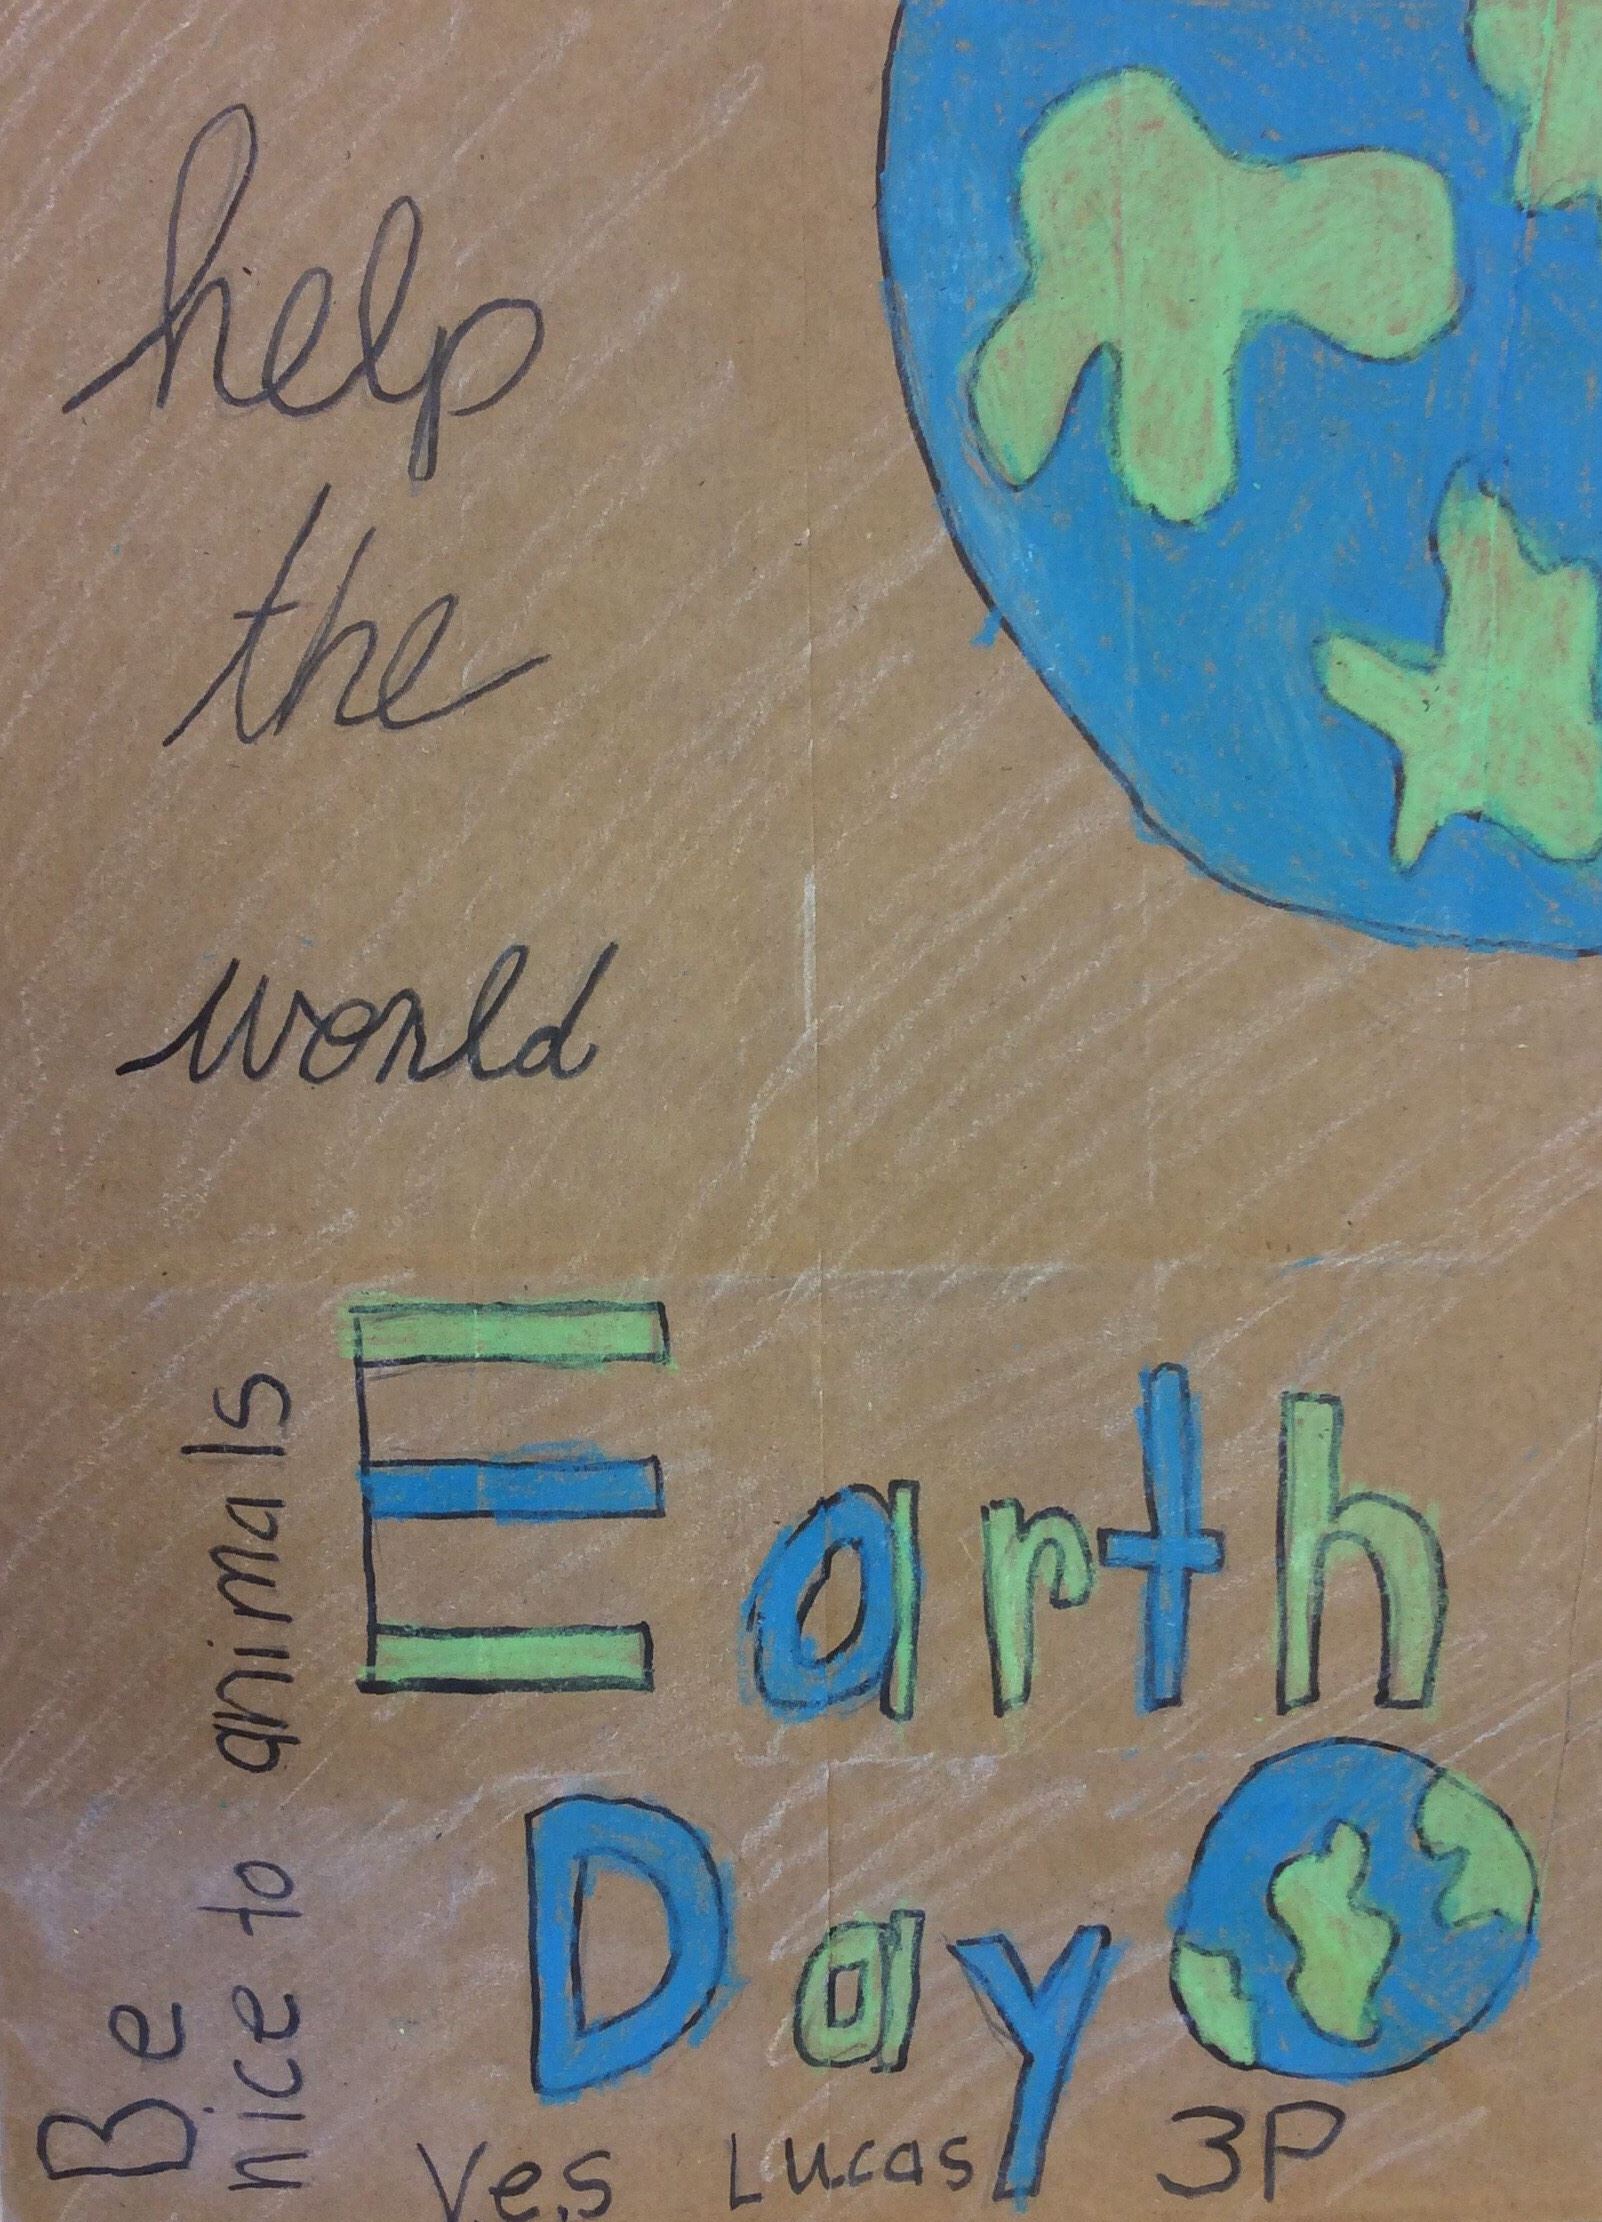 help
the
world
Earth
Day
Be
nice to animals
V.e.s Lucas 3P